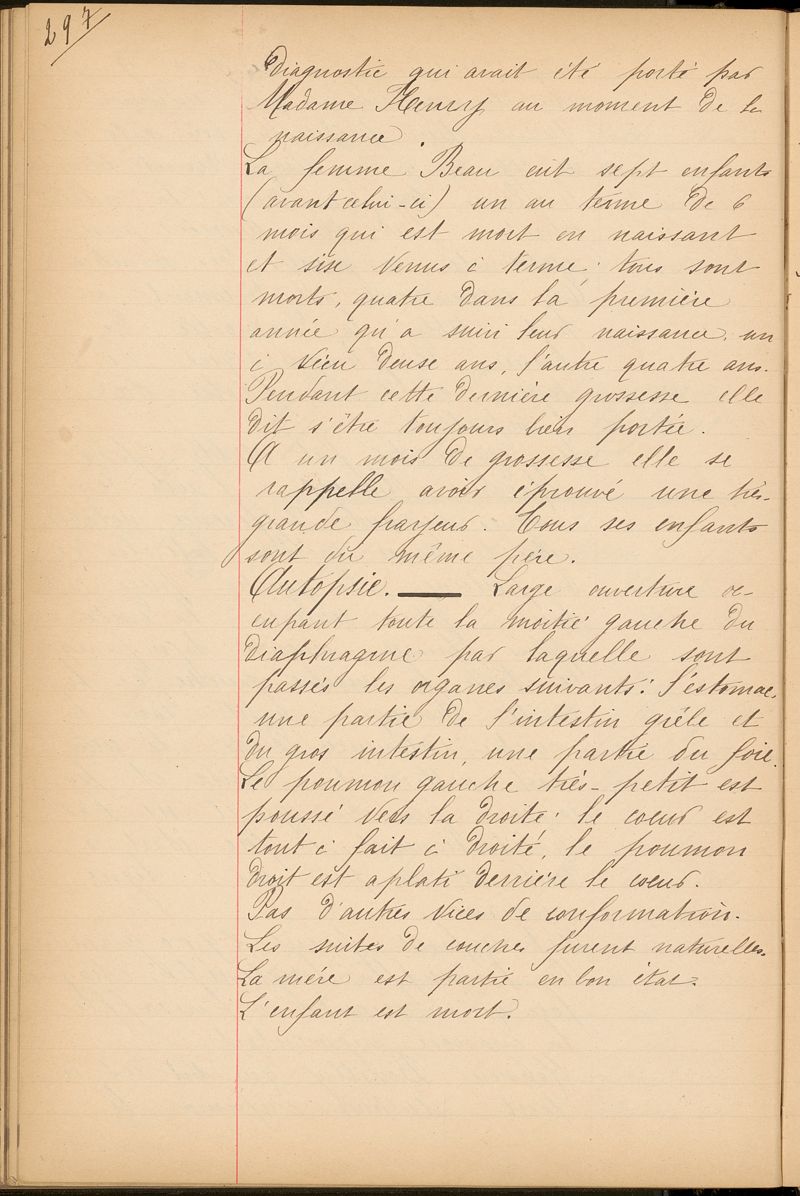 297
diagnostic qui avait été porté par
Madame Henry au moment de la
naissance.
La femme Beau eut sept enfants
(avant celui-ci) un au terme de 6
mois qui est mort en naissant
et six venus à terme; tous sont
morts, quatre dans la première
année qu'a suivi leur naissance, un
à vécu deuse ans, l'autre quatre ans.
Pendant cette dernière grossesse elle
dit s'être toujours bien portée.
A un mois de grossesse elle se
rappelle avoir éprouvé une très-
grande frayeur. Tous ses enfants
sont du même père.
Autopsie. — Large ouverture oc-
cupant toute la moitié gauche du
diaphragme par laquelle sont
passés les organes suivants: l'estomac,
une partie de l'intestin grêle et
du gros intestin, une partie du foie.
Le poumon gauche très-petit est
poussé vers la droite; le coeur est
tout à fait à droite, le poumon
droit est aplati derrière le coeur.
Pas d'autres vices de conformation.
Les suites de couches furent naturelles.
La mère est partie en bon état.
L'enfant est mort.